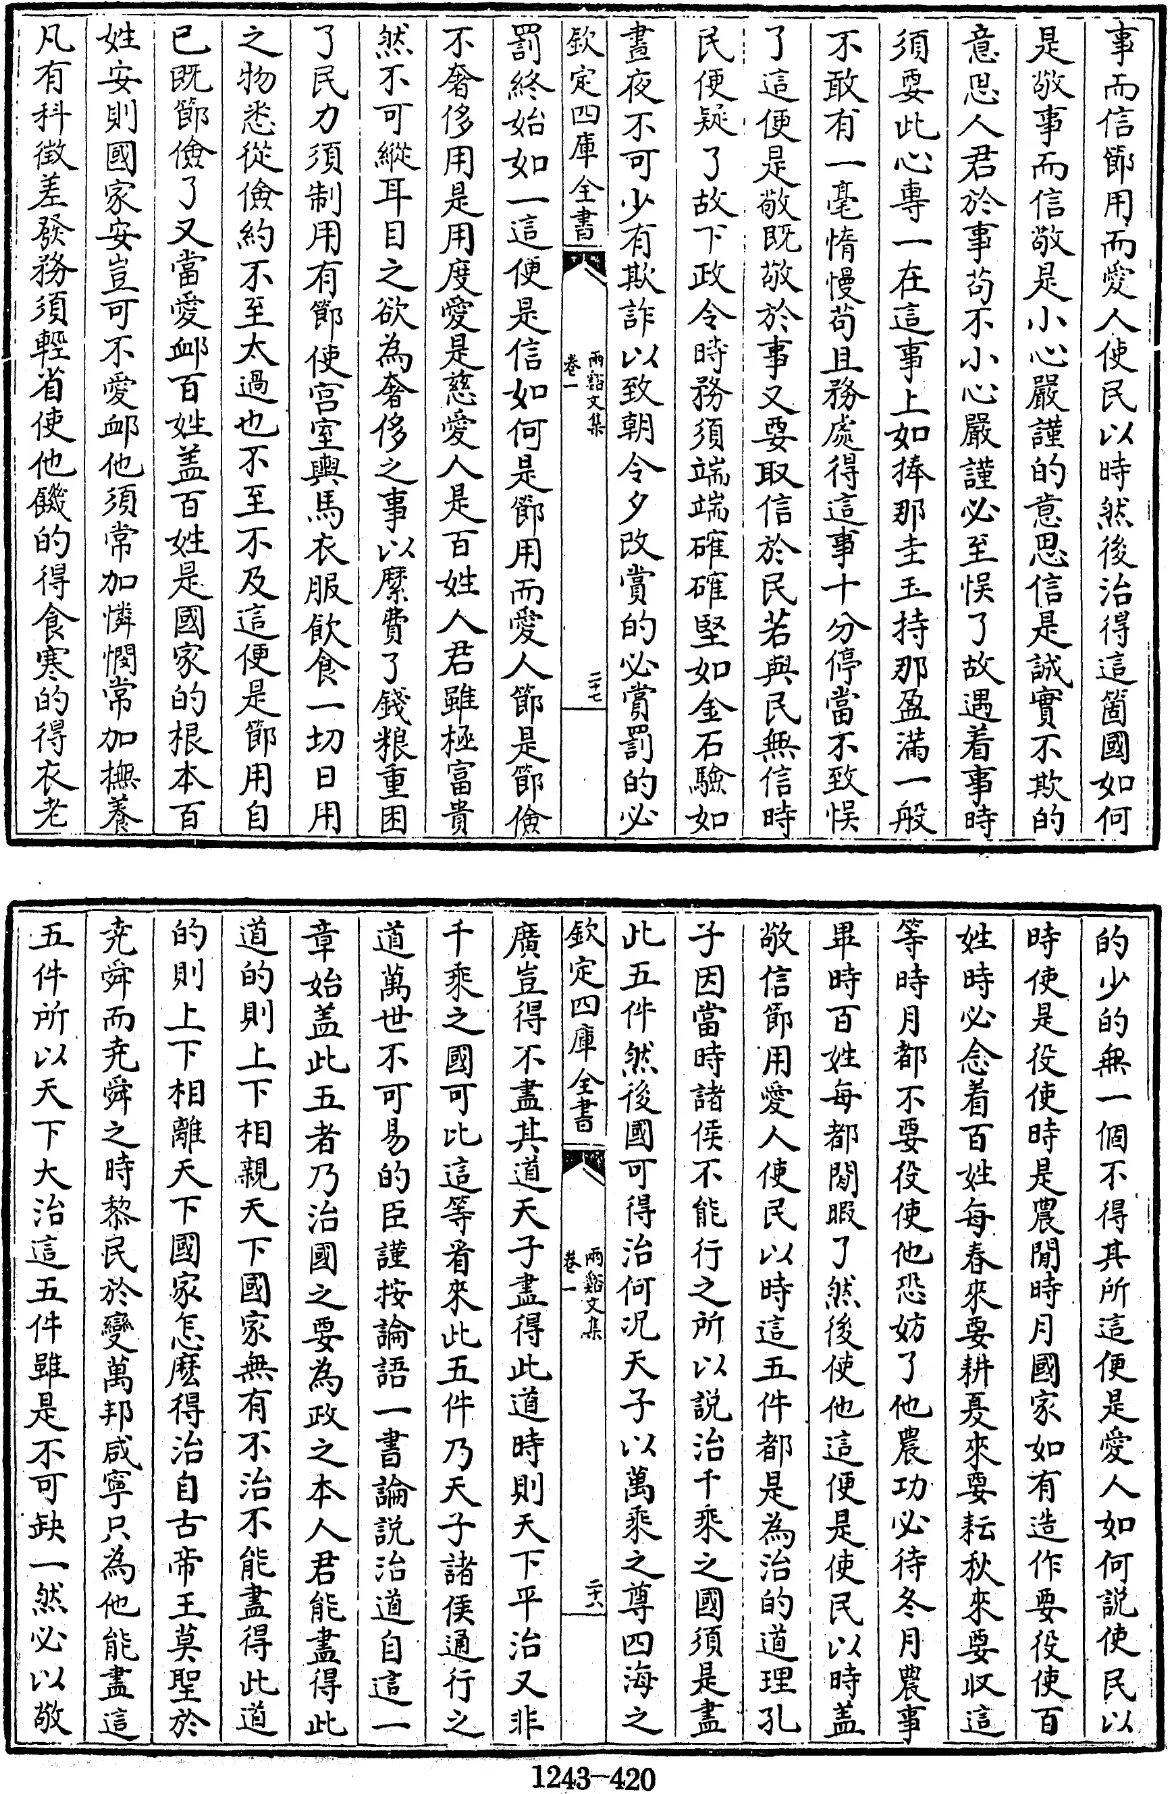 事而信節用而愛人使民以時然後治得這箇國如何
是敬事而信敬是小心嚴謹的意思信是誠實不欺的
意思人君於事苟不小心嚴謹必至悞了故遇着事時
須要此心專一在這事上如捧那圭玉持那盈滿一般
不敢有一毫惰慢苟且務處得這事十分停當不致悞
了這便是敬既敬於事又要取信於民若與民無信時
民便疑了故下政令時務須端端確確堅如金石驗如
晝夜不可少有欺詐以致朝令夕改賞的必賞罰的必
欽定四庫全書
兩谿文集
卷一
二十七
罰終始如一這便是信如何是節用而愛人節是節儉
不奢侈用是用度愛是慈愛人是百姓人君雖極富貴
然不可縱耳目之欲為奢侈之事以縻費了錢粮重困
了民力須制用有節使宫室輿馬衣服飲食一切日用
之物悉從儉約不至太過也不至不及這便是節用自
已既節儉了又當愛䘏百姓盖百姓是國家的根本百
姓安則國家安豈可不愛䘏他須常加憐憫常加撫養
凡有科徵差發務須輕省使他饑的得食寒的得衣老
的少的無一個不得其所這便是愛人如何説使民以
時使是役使時是農閒時月國家如有造作要役使百
姓時必念着百姓每春來要耕夏來要耘秋來要收這
等時月都不要役使他恐妨了他農功必待冬月農事
畢時百姓每都閒暇了然後使他這便是使民以時盖
敬信節用愛人使民以時這五件都是為治的道理孔
子因當時諸侯不能行之所以説治千乘之國須是盡
此五件然後國可得治何况天子以萬乘之尊四海之
欽定四庫全書
兩谿文集
卷一
二十八
廣豈得不盡其道天子盡得此道時則天下平治又非
千乘之國可比這等看來此五件乃天子諸侯通行之
道萬世不可易的臣謹按論語一書論説治道自這一
章始盖此五者乃治國之要為政之本人君能盡得此
道的則上下相親天下國家無有不治不能盡得此道
的則上下相離天下國家怎麽得治自古帝王莫聖於
堯舜而堯舜之時黎民於變萬邦咸寧只為他能盡這
五件所以天下大治這五件雖是不可缺一然必以敬
1243-420